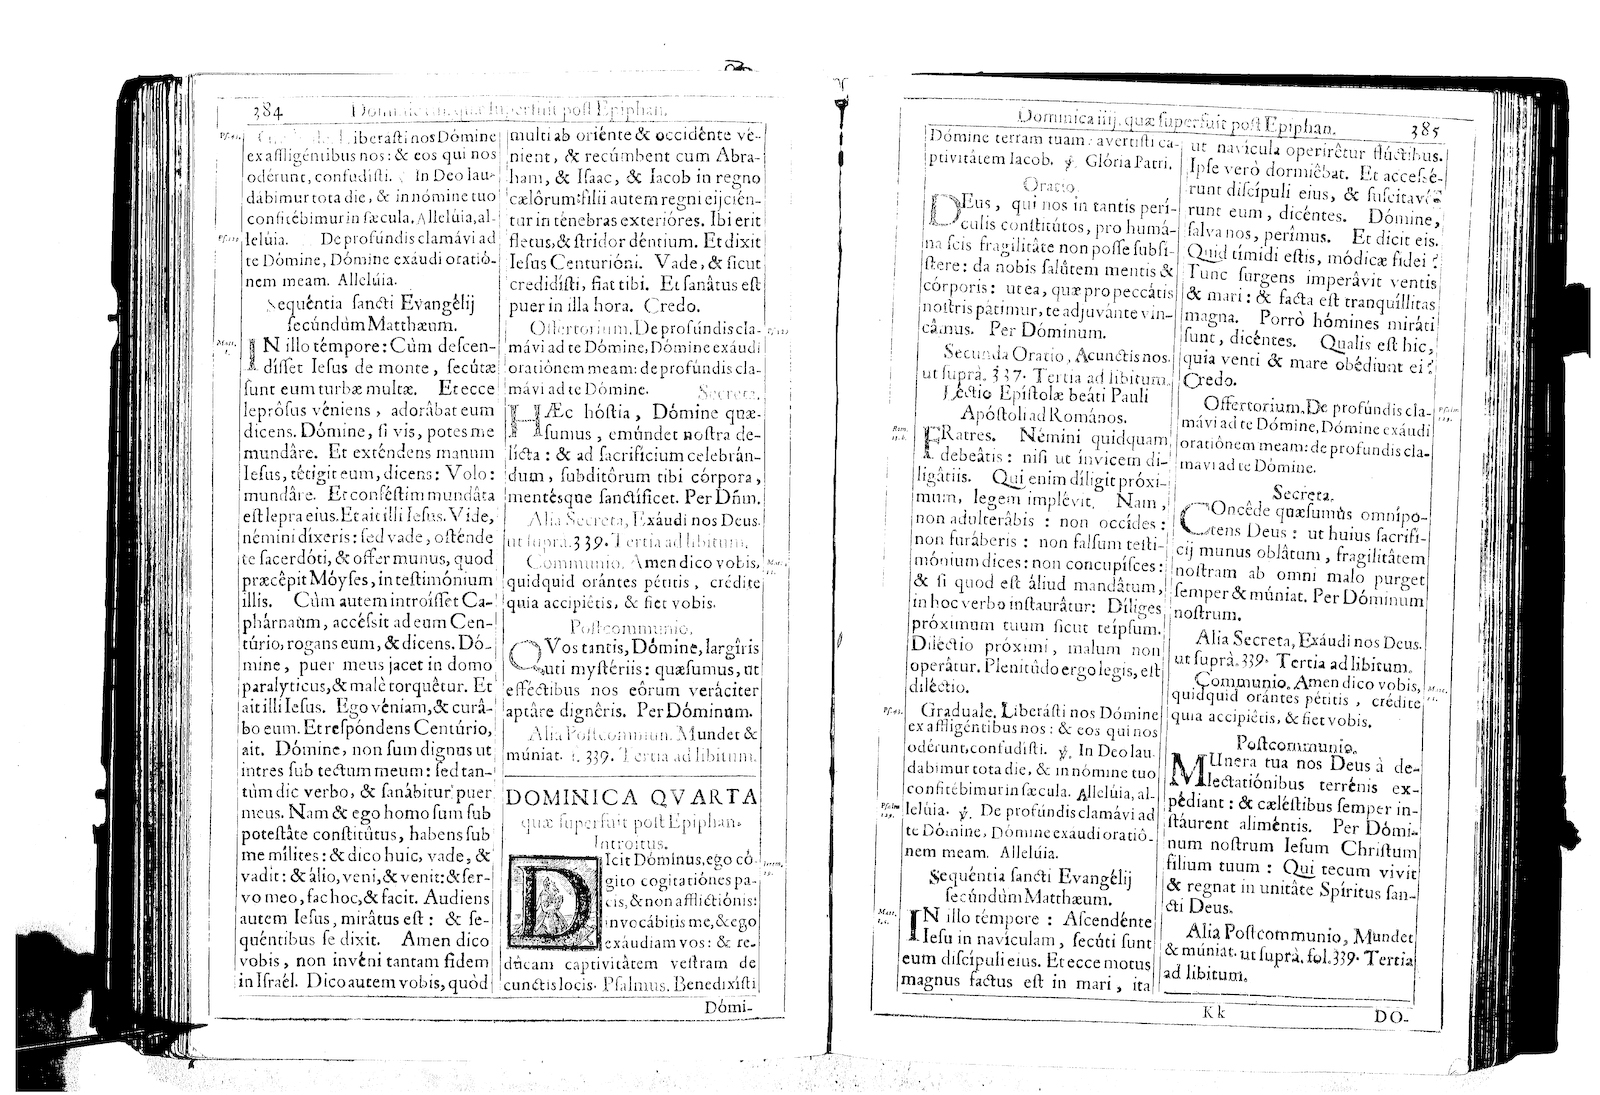 384 post Epiphan.
Liberaſti nos Dómine
ex affligéntibus nos: & eos qui nos
odérunt, confudiſti. In Deo lau-
dábimur tota die, & in nómine tuo
confitébimur in ſæcula. Allelúia, al-
lelúia. De profúndis clamávi ad
te Dómine, Dómine exáudi oratió-
nem meam. Allelúia.
Sequéntia ſancti Evangélij
ſecúndùm Matthæum.
IN illo témpore: Cùm deſcen-
díſſet Ieſus de monte, ſecútæ
ſunt eum turbæ multæ. Et ecce
leprôſus véniens, adorâbat eum
dicens. Dómine, ſi vis, potes me
mundâre. Et exténdens manum
Ieſus, tétigit eum, dicens: Volo:
mundâre. Et conféſtim mundâta
eſt lepra eius. Et ait illi Ieſus. Vide,
némini díxeris: ſed vade, oſténde
te ſacerdóti, & offer munus, quod
præcêpit Móyſes, in teſtimónium
illis. Cùm autem introíſſet Ca-
phárnaum, accéſsit ad eum Cen-
túrio, rogans eum, & dicens. Dó-
mine, puer meus jacet in domo
paralyticus, & malè torquêtur. Et
ait illi Ieſus. Ego véniam, & curâ-
bo eum. Et reſpóndens Centúrio,
ait. Dómine, non ſum dignus ut
intres ſub tectum meum: ſed tan-
tùm dic verbo, & ſanâbitur puer
meus. Nam & ego homo ſum ſub
poteſtâte conſtitûtus, habens ſub
me mílites: & dico huic, vade, &
vadit: & álio, veni, & venit: & ſer-
vo meo, fac hoc, & facit. Audiens
autem Ieſus, mirâtus eſt: & ſe-
quéntibus ſe dixit. Amen dico
vobis, non invéni tantam fidem
in Iſraél. Dico autem vobis, quòd
multi ab oriénte & occidénte vé-
nient, & recúmbent cum Abra-
ham, & Iſaac, & Iacob in regno
cælôrum: fílii autem regni eijcién-
tur in ténebras exterióres. Ibi erit
fletus, & ſtridor déntium. Et dixit
Ieſus Centurióni. Vade, & ſicut
credidíſti, fiat tibi. Et ſanâtus eſt
puer in illa hora. Credo.
Offertorium. De profúndis cla-
mávi ad te Dómine, Dómine exáudi
oratiónem meam: de profúndis cla-
mávi ad te Dómine. Secreta.
HÆc hóſtia, Dómine quæ-
ſumus, emúndet noſtra de-
lícta: & ad ſacrificium celebrán-
dum, ſubditôrum tibi córpora,
mentéſque ſanctíficet. Per Dñm.
Alia Secreta, Exáudi nos Deus.
ut ſupra. 339. Tertia ad libitum.
Communio. Amen dico vobis,
quidquid orántes pétitis, crédite
quia accipiétis, & fiet vobis.
Poſtcommunio.
QVos tantis, Dómine, largîris
uti myſtériis: quæſumus, ut
efféctibus nos eôrum veráciter
aptâre dignêris. Per Dóminum.
Alia Poſtcommun. Mundet &
múniat. f. 339. Tertia ad libitum.
DOMINICA QVARTA
quæ ſuperfuit poſt Epiphan.
Introitus.
DIcit Dóminus, ego có-
gito cogitatiónes pa-
cis, & non afflictiónis:
invocábitis me, & ego
exáudiam vos: & re-
dûcam captivitâtem veſtram de
cunctis locis. Pſalmus. Benedixíſti
Dómi-
Dominica iiij. quæ ſuperfuit poſt Epiphan. 385
Dómine terram tuam: avertíſti ca-
ptivitâtem Iacob. ℣. Glória Patri.
Oratio.
DEus, qui nos in tantis perí-
culis conſtitútos, pro humá-
na ſcis fragilitâte non poſſe ſubſí-
ſtere: da nobis ſalûtem mentis &
córporis: ut ea, quæ pro peccâtis
noſtris pátimur, te adjuvánte vin-
câmus. Per Dóminum.
Secunda Oratio, A cunctis nos.
ut ſuprà. 337. Tertia ad libitum.
Léctio Epíſtolæ beáti Pauli
Apóſtoli ad Romános.
FRatres. Némini quidquam
debeâtis: niſi ut ínvicem di-
ligâtiis. Qui enim díligit próxi-
mum, legem implévit. Nam,
non adulterâbis: non occídes:
non furáberis: non falſum teſti-
mónium dices: non concupíſces:
& ſi quod eſt áliud mandâtum,
in hoc verbo inſtaurâtur: Díliges
próximum tuum ſicut teípſum.
Diléctio próximi, malum non
operâtur. Plenitûdo ergo legis, eſt
diléctio.
Graduale. Liberáſti nos Dómine
ex affligéntibus nos: & eos qui nos
odérunt, confudiſti. ℣. In Deo lau-
dabimur tota die, & in nómine tuo
confitébimur in ſæcula. Allelúia, al-
lelúia. ℣. De profúndis clamávi ad
te Dómine, Dómine exáudi oratió-
nem meam. Allelúia.
Sequéntia ſancti Evangélij
ſecúndùm Matthæum.
IN illo témpore: Aſcendénte
Ieſu in navículam, ſecúti ſunt
eum diſcípuli eius. Et ecce motus
magnus factus eſt in mari, ita
ut navícula operirêtur flúctibus.
Ipſe verò dormiêbat. Et acceſſé-
runt diſcípuli eius, & ſuſcitavé-
runt eum, dicéntes. Dómine,
ſalva nos, perímus. Et dicit eis.
Quid tímidi eſtis, módicæ fidei?
Tunc ſurgens imperâvit ventis
& mari: & facta eſt tranquíllitas
magna. Porrò hómines miráti
ſunt, dicéntes. Qualis eſt hic,
quia venti & mare obédiunt ei?
Credo.
Offertorium. De profúndis cla-
mávi ad te Dómine, Dómine exáudi
oratiónem meam: de profundis cla-
mavi ad te Dómine.
Secreta.
COncêde quæſumus omnípo-
tens Deus: ut huius ſacrifí-
cij munus oblâtum, fragilitâtem
noſtram ab omni malo purget
ſemper & múniat. Per Dóminum
noſtrum.
Alia Secreta, Exáudi nos Deus.
ut ſuprà. 339. Tertia ad libitum.
Communio. Amen dico vobis,
quidquid orántes pétitis, crédite
quia accipiétis, & fiet vobis.
Poſtcommunio.
MUnera tua nos Deus à de-
lectatiónibus terrénis ex-
pédiant: & cæléſtibus ſemper in-
ſtáurent aliméntis. Per Dómi-
num noſtrum Ieſum Chriſtum
filium tuum: Qui tecum vivit
& regnat in unitâte Spíritus ſan-
cti Deus.
Alia Poſtcommunio, Mundet
& múniat. ut ſuprà. fol. 339. Tertia
ad libitum.
K k DO-